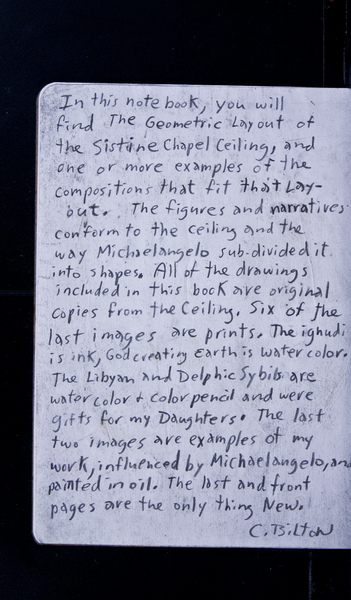 In this note book, you will
find The Geometric Layout of
the Sistine Chapel Ceiling, and
one or more examples of the
compositions that fit that Lay-
out. The figures and narratives
conform to the ceiling and the
way Michaelangelo sub-divided it
into shapes. All of the drawings
included in this book are original
copies from the Ceiling. Six of the
last images are prints. The ighudi
is ink, God creating Earth is water color.
The Libyan and Delphic Sybils are
water color + color pencil and were
gifts for my Daughters. The last
two images are examples of my
work, influenced by Michaelangelo, and
painted in oil. The last and front
pages are the only thing New.
C. Bilton